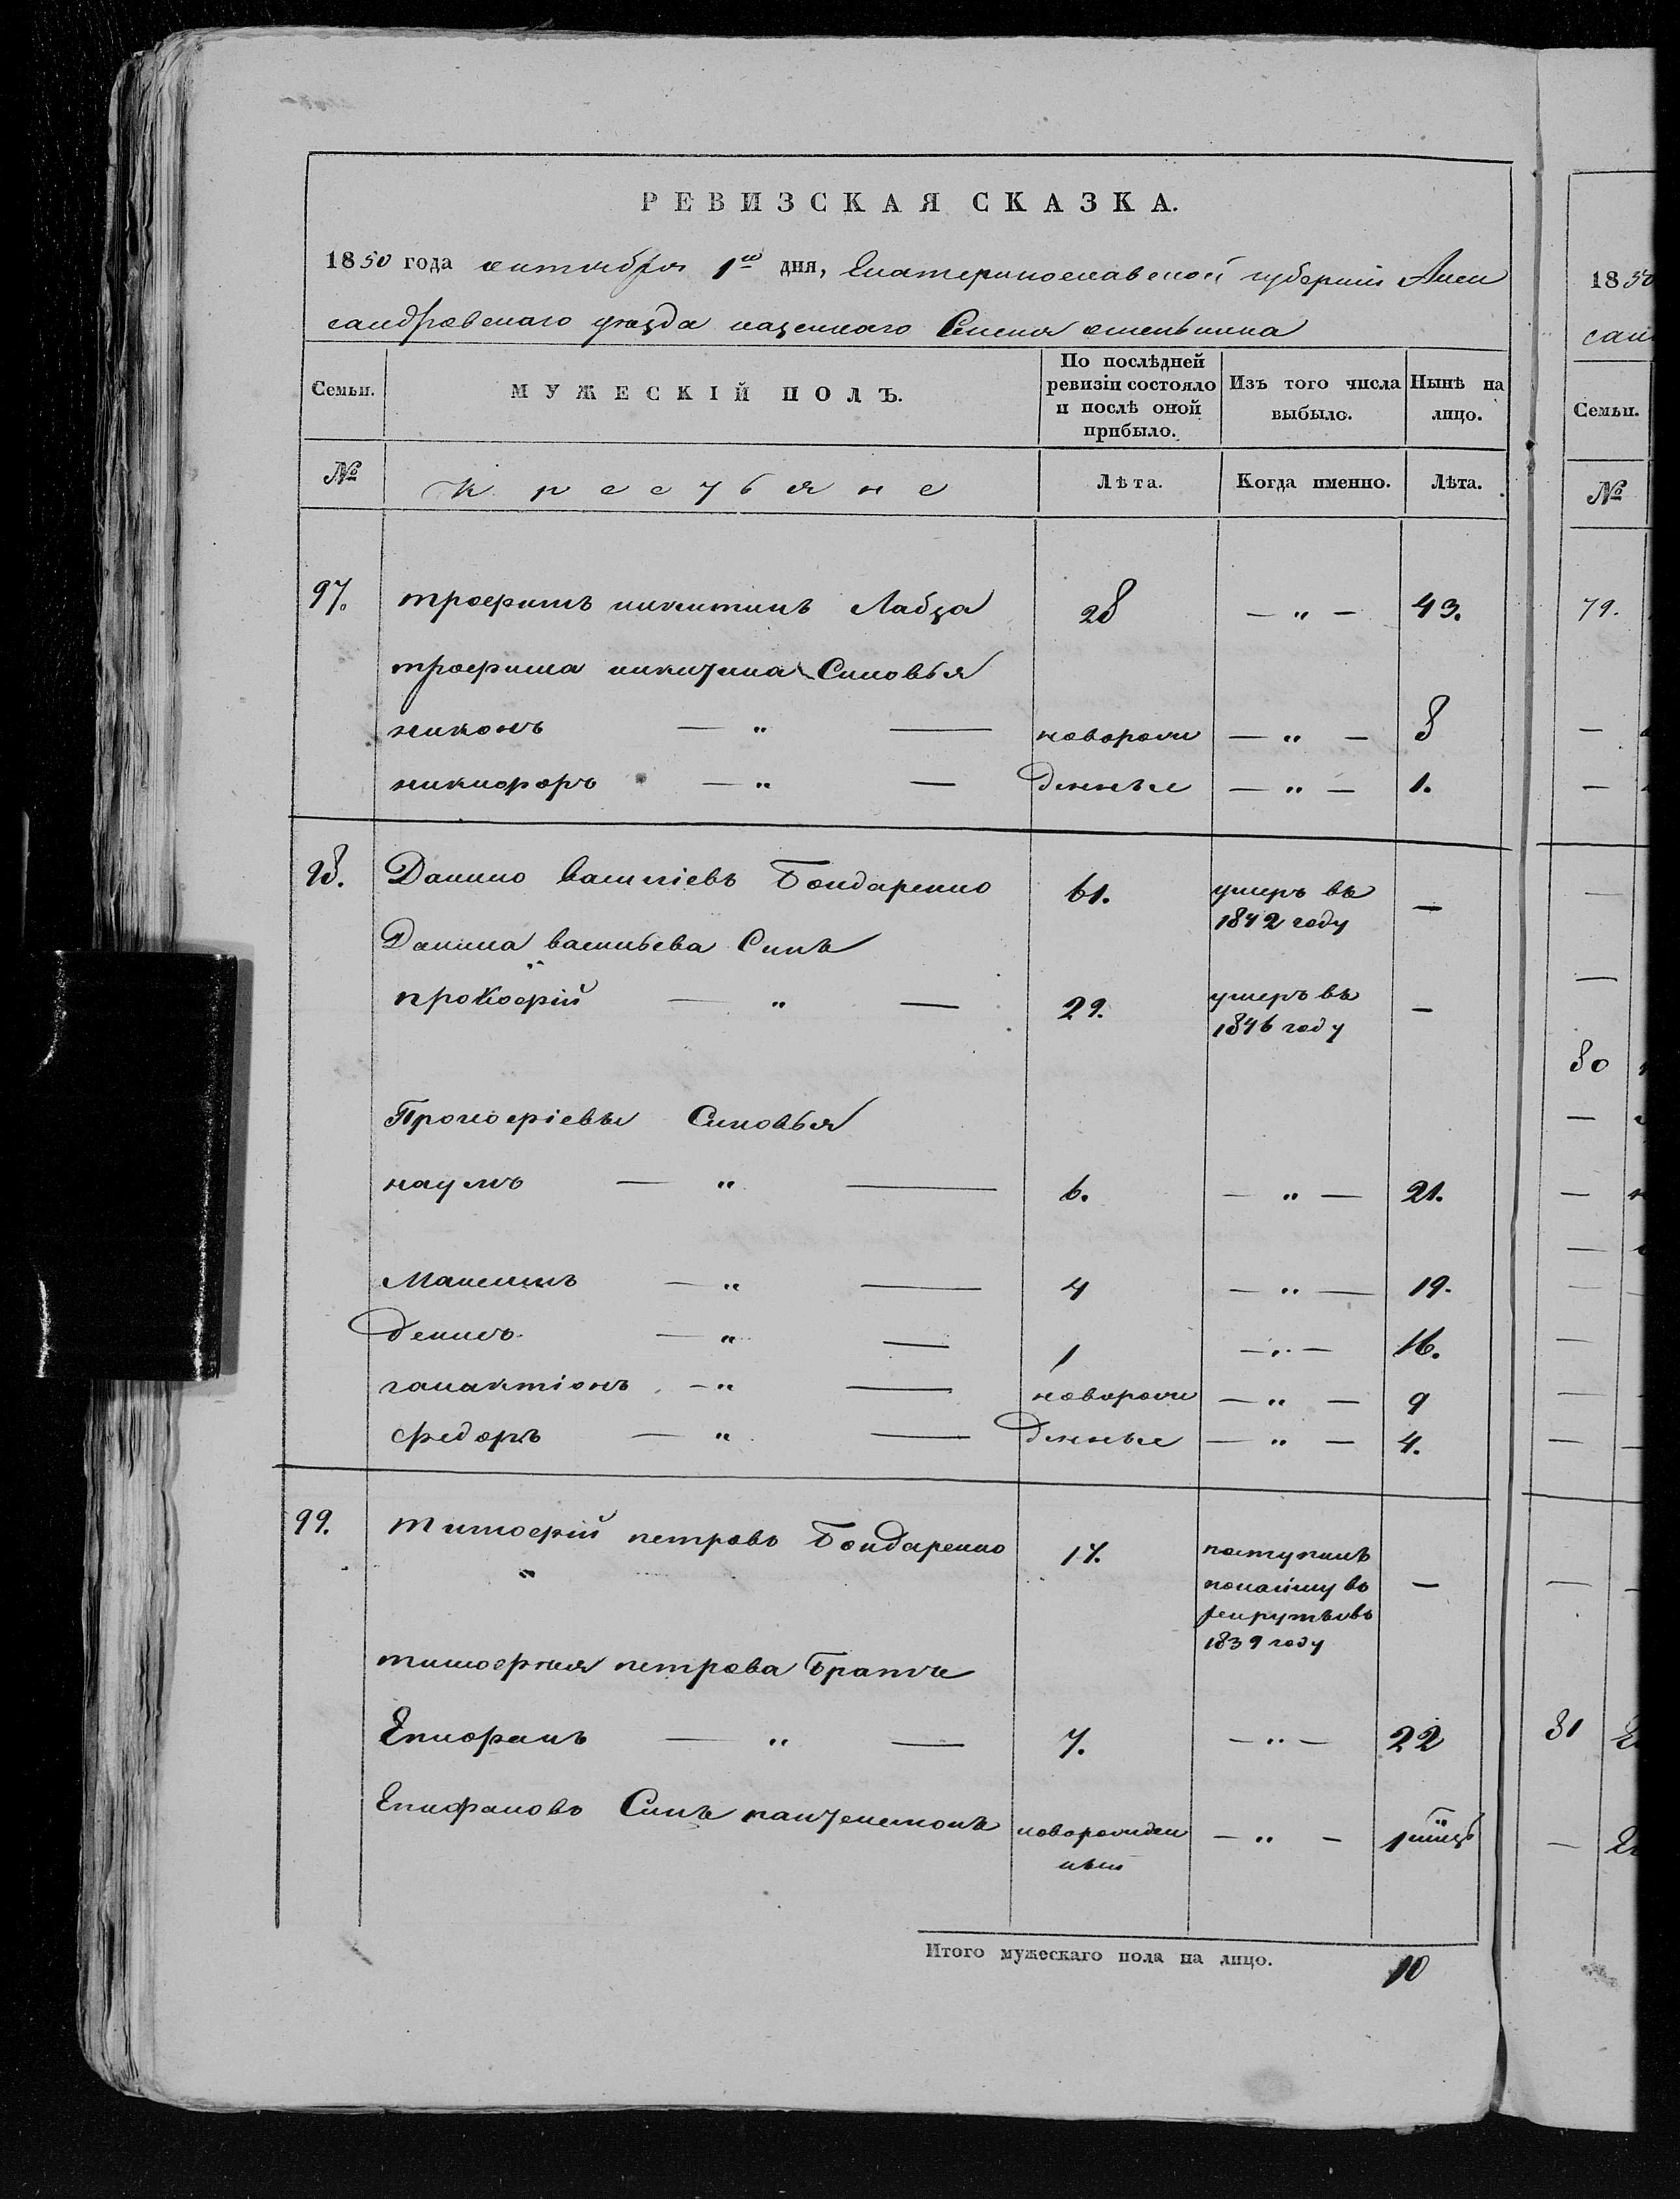 РЕВИЗСКАЯ СКАЗКА.
1850 года октября 1го дня, Екатеринославской губернiи Алек
сандровскаго уезда казеннаго Селения
Семьи.
МУЖЕСКIЙ ПОЛЪ.
По послѣдней ревизiи состояло и послѣ оной прибыло.
Изъ того числа выбыло.
Нынѣ на лицо.
№
Крестьяне
Лѣта.
Когда именно.
Лѣта.
97. трофимъ никитинъ Лабза 28 — " — 43.
трофима никитина Синовья
никонъ — " — новорож — " — 8
никифоръ — " — денные — " — 1.
98. Данило Василiевъ Бондаренко 61. умеръ въ 1842 году —
Данила васильева Синъ
прокофiй — " — 29. умеръ въ 1846 году —
Прокофiевы Синовья
наумъ — " — 6. — " — 21.
Максимъ — " — 4 — " — 19.
денисъ — " — 1 — " — 16.
галактiонъ — " — новорож — " — 9
федоръ — " — денные — " — 4.
99. тимофiй петровъ Бондаренко 17. поступилъ понайму въ рекруты въ 1839 году —
тимофея петрова Братья
Епифанъ — " — 7. — " — 22
Епифановъ Синъ пантелемонъ новорожден ный — " — 1 мiсцъ
Итого мужескаго пола на лицо. 10
1850
сан
Семьи.
№
79.
80
81